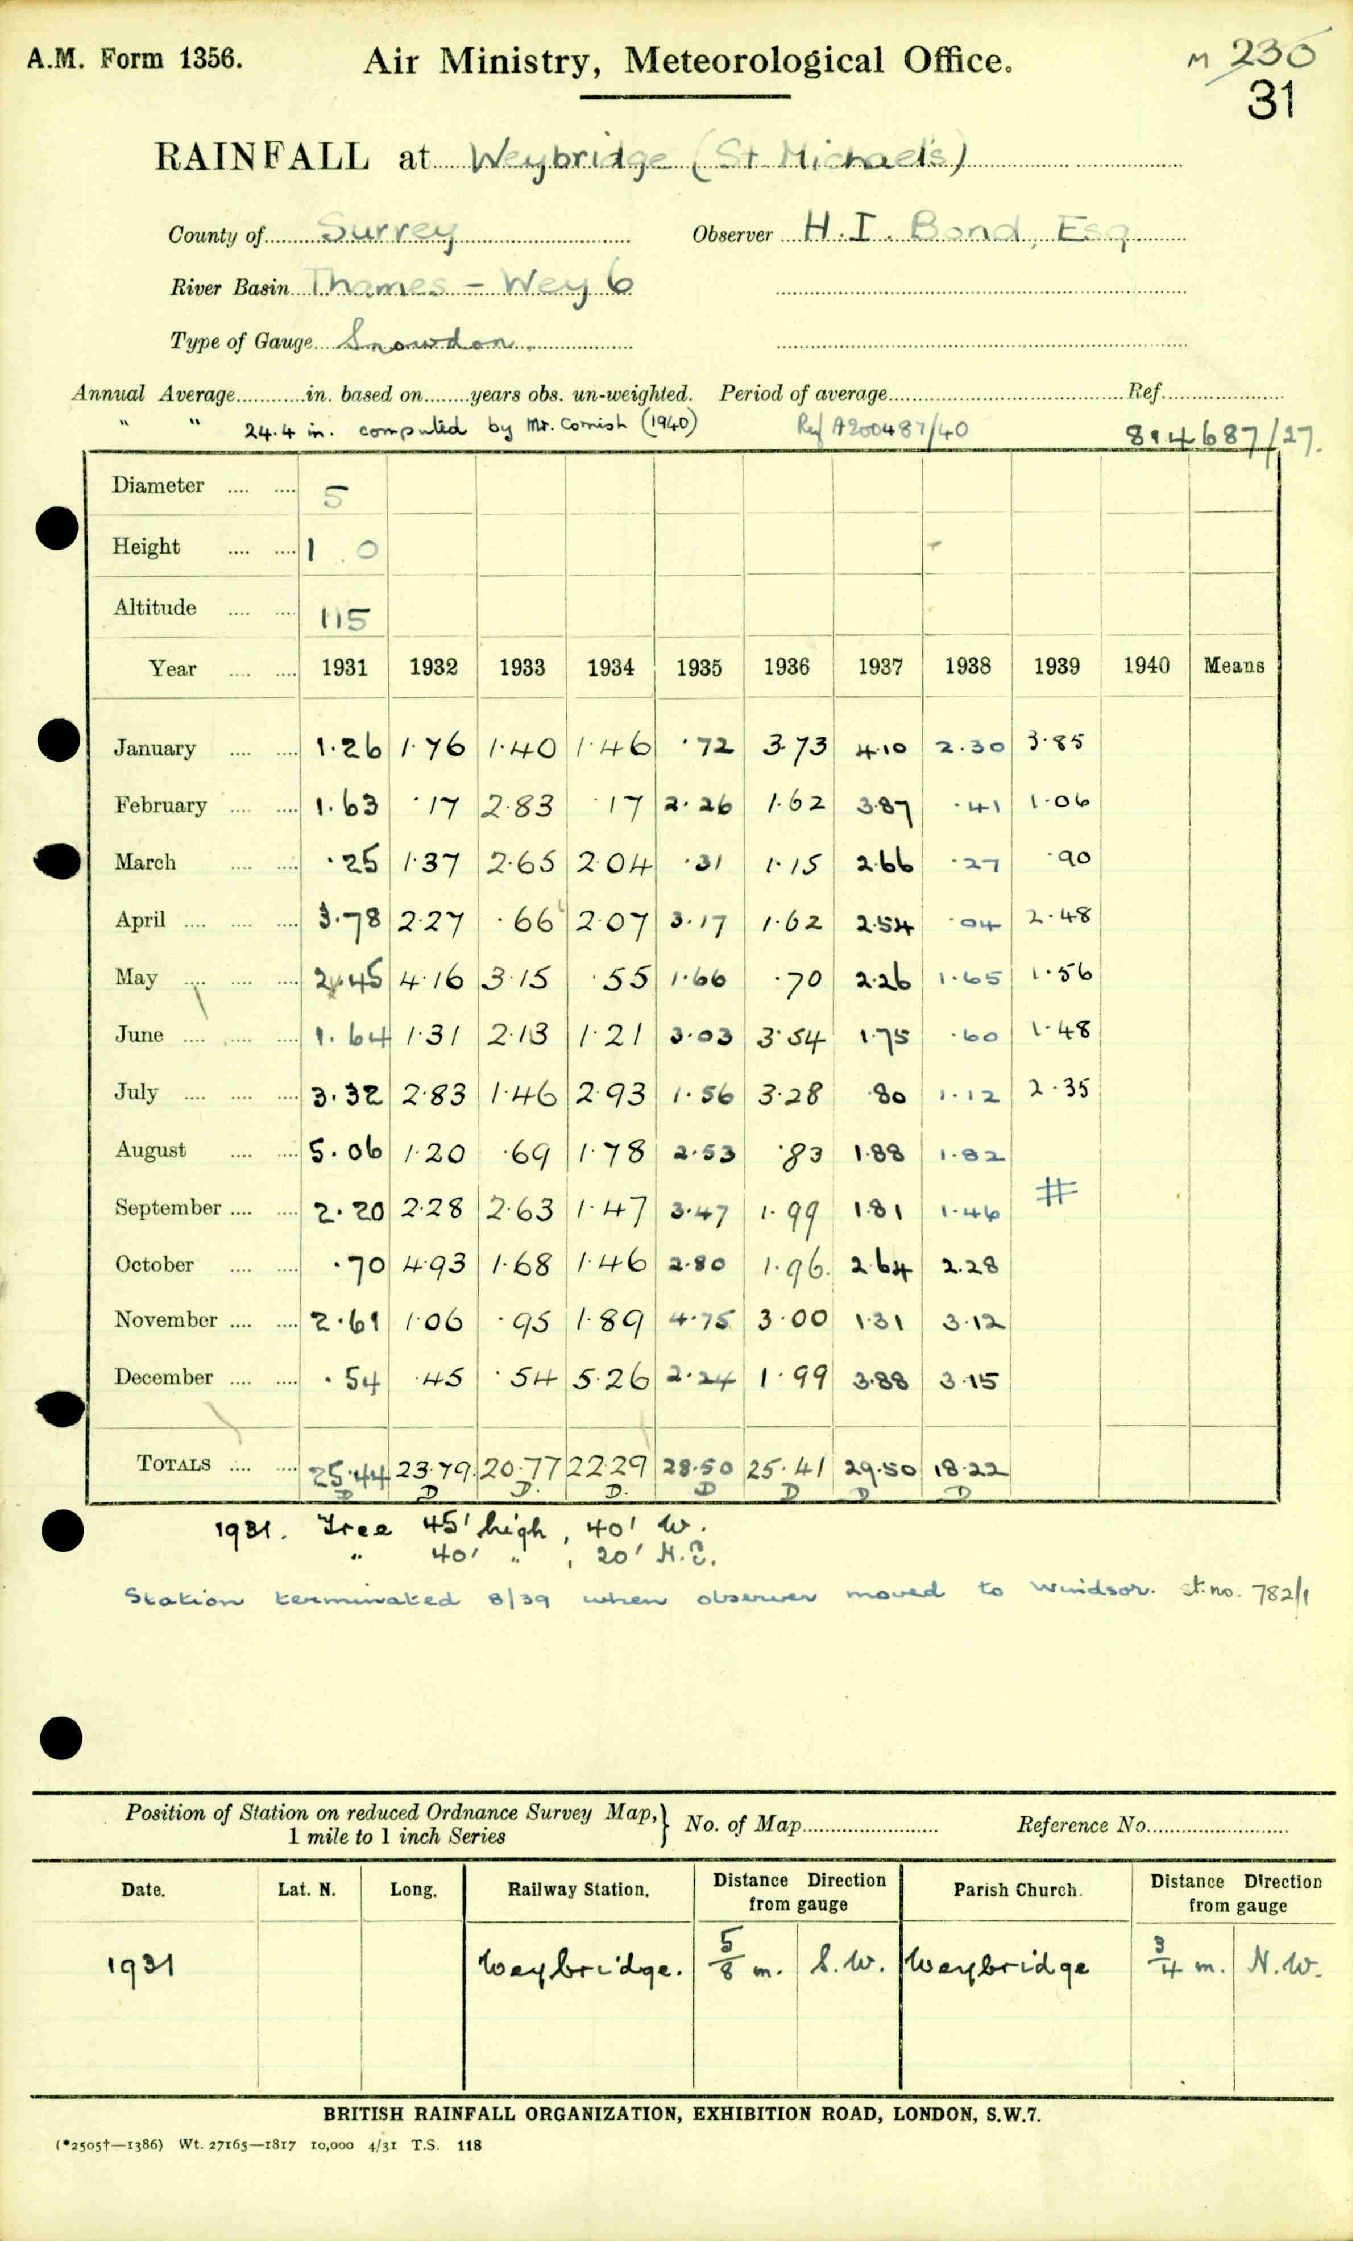 A.M. Form 1356.
Air Ministry, Meteorological Office.
M 230
31
RAINFALL at Weybridge (St Michael's)
County of Surrey Observer H.I. Bond, Esq
River Basin Thames - Wey 6
Type of Gauge Snowdon.
Annual Average............in. based on........years obs. un-weighted. Period of average............Ref............
" " 24.4 in. computed by Mr. Cornish (1940) Ref A200487/40 814687/27.
Diameter .... .... 5
Height .... .... 1 0
Altitude .... .... 115
Year .... .... 1931 1932 1933 1934 1935 1936 1937 1938 1939 1940 Means
January .... .... 1.26 1.76 1.40 1.46 .72 3.73 4.10 2.30 3.85
February .... .... 1.63 .17 2.83 .17 2.26 1.62 3.87 .41 1.06
March .... .... .25 1.37 2.65 2.04 .31 1.15 2.66 .27 .90
April .... .... .... 3.78 2.27 .66 2.07 3.17 1.62 2.54 .04 2.48
May .... .... .... 2.45 4.16 3.15 .55 1.66 .70 2.26 1.65 1.56
June .... .... .... 1.64 1.31 2.13 1.21 3.03 3.54 1.75 .60 1.48
July .... .... .... 3.32 2.83 1.46 2.93 1.56 3.28 .80 1.12 2.35
August .... .... 5.06 1.20 .69 1.78 2.53 .83 1.88 1.82
September .... .... 2.20 2.28 2.63 1.47 3.47 1.99 1.81 1.46 #
October .... .... .70 4.93 1.68 1.46 2.80 1.96. 2.64 2.28
November .... .... 2.61 1.06 .95 1.89 4.75 3.00 1.31 3.12
December .... .... .54 .45 .54 5.26 2.24 1.99 3.88 3.15
TOTALS .... .... 25.44 23.79. 20.77 22.29 28.50 25.41 29.50 18.22
D D D. D. D D D D
1931. Tree 45' high, 40' W.
" 40' " , 20' N.E.
Station terminated 8/39 when observer moved to Windsor. st. no. 782/1
Position of Station on reduced Ordnance Survey Map,} No. of Map............ Reference No............
1 mile to 1 inch Series
Date. Lat. N. Long. Railway Station. Distance Direction from gauge Parish Church. Distance Direction from gauge
1931 Weybridge. 5/8 m. S.W. Weybridge 3/4 m. N.W.
BRITISH RAINFALL ORGANIZATION, EXHIBITION ROAD, LONDON, S.W.7.
(*2505†—1386) Wt. 27165—1817 10,000 4/31 T.S. 118